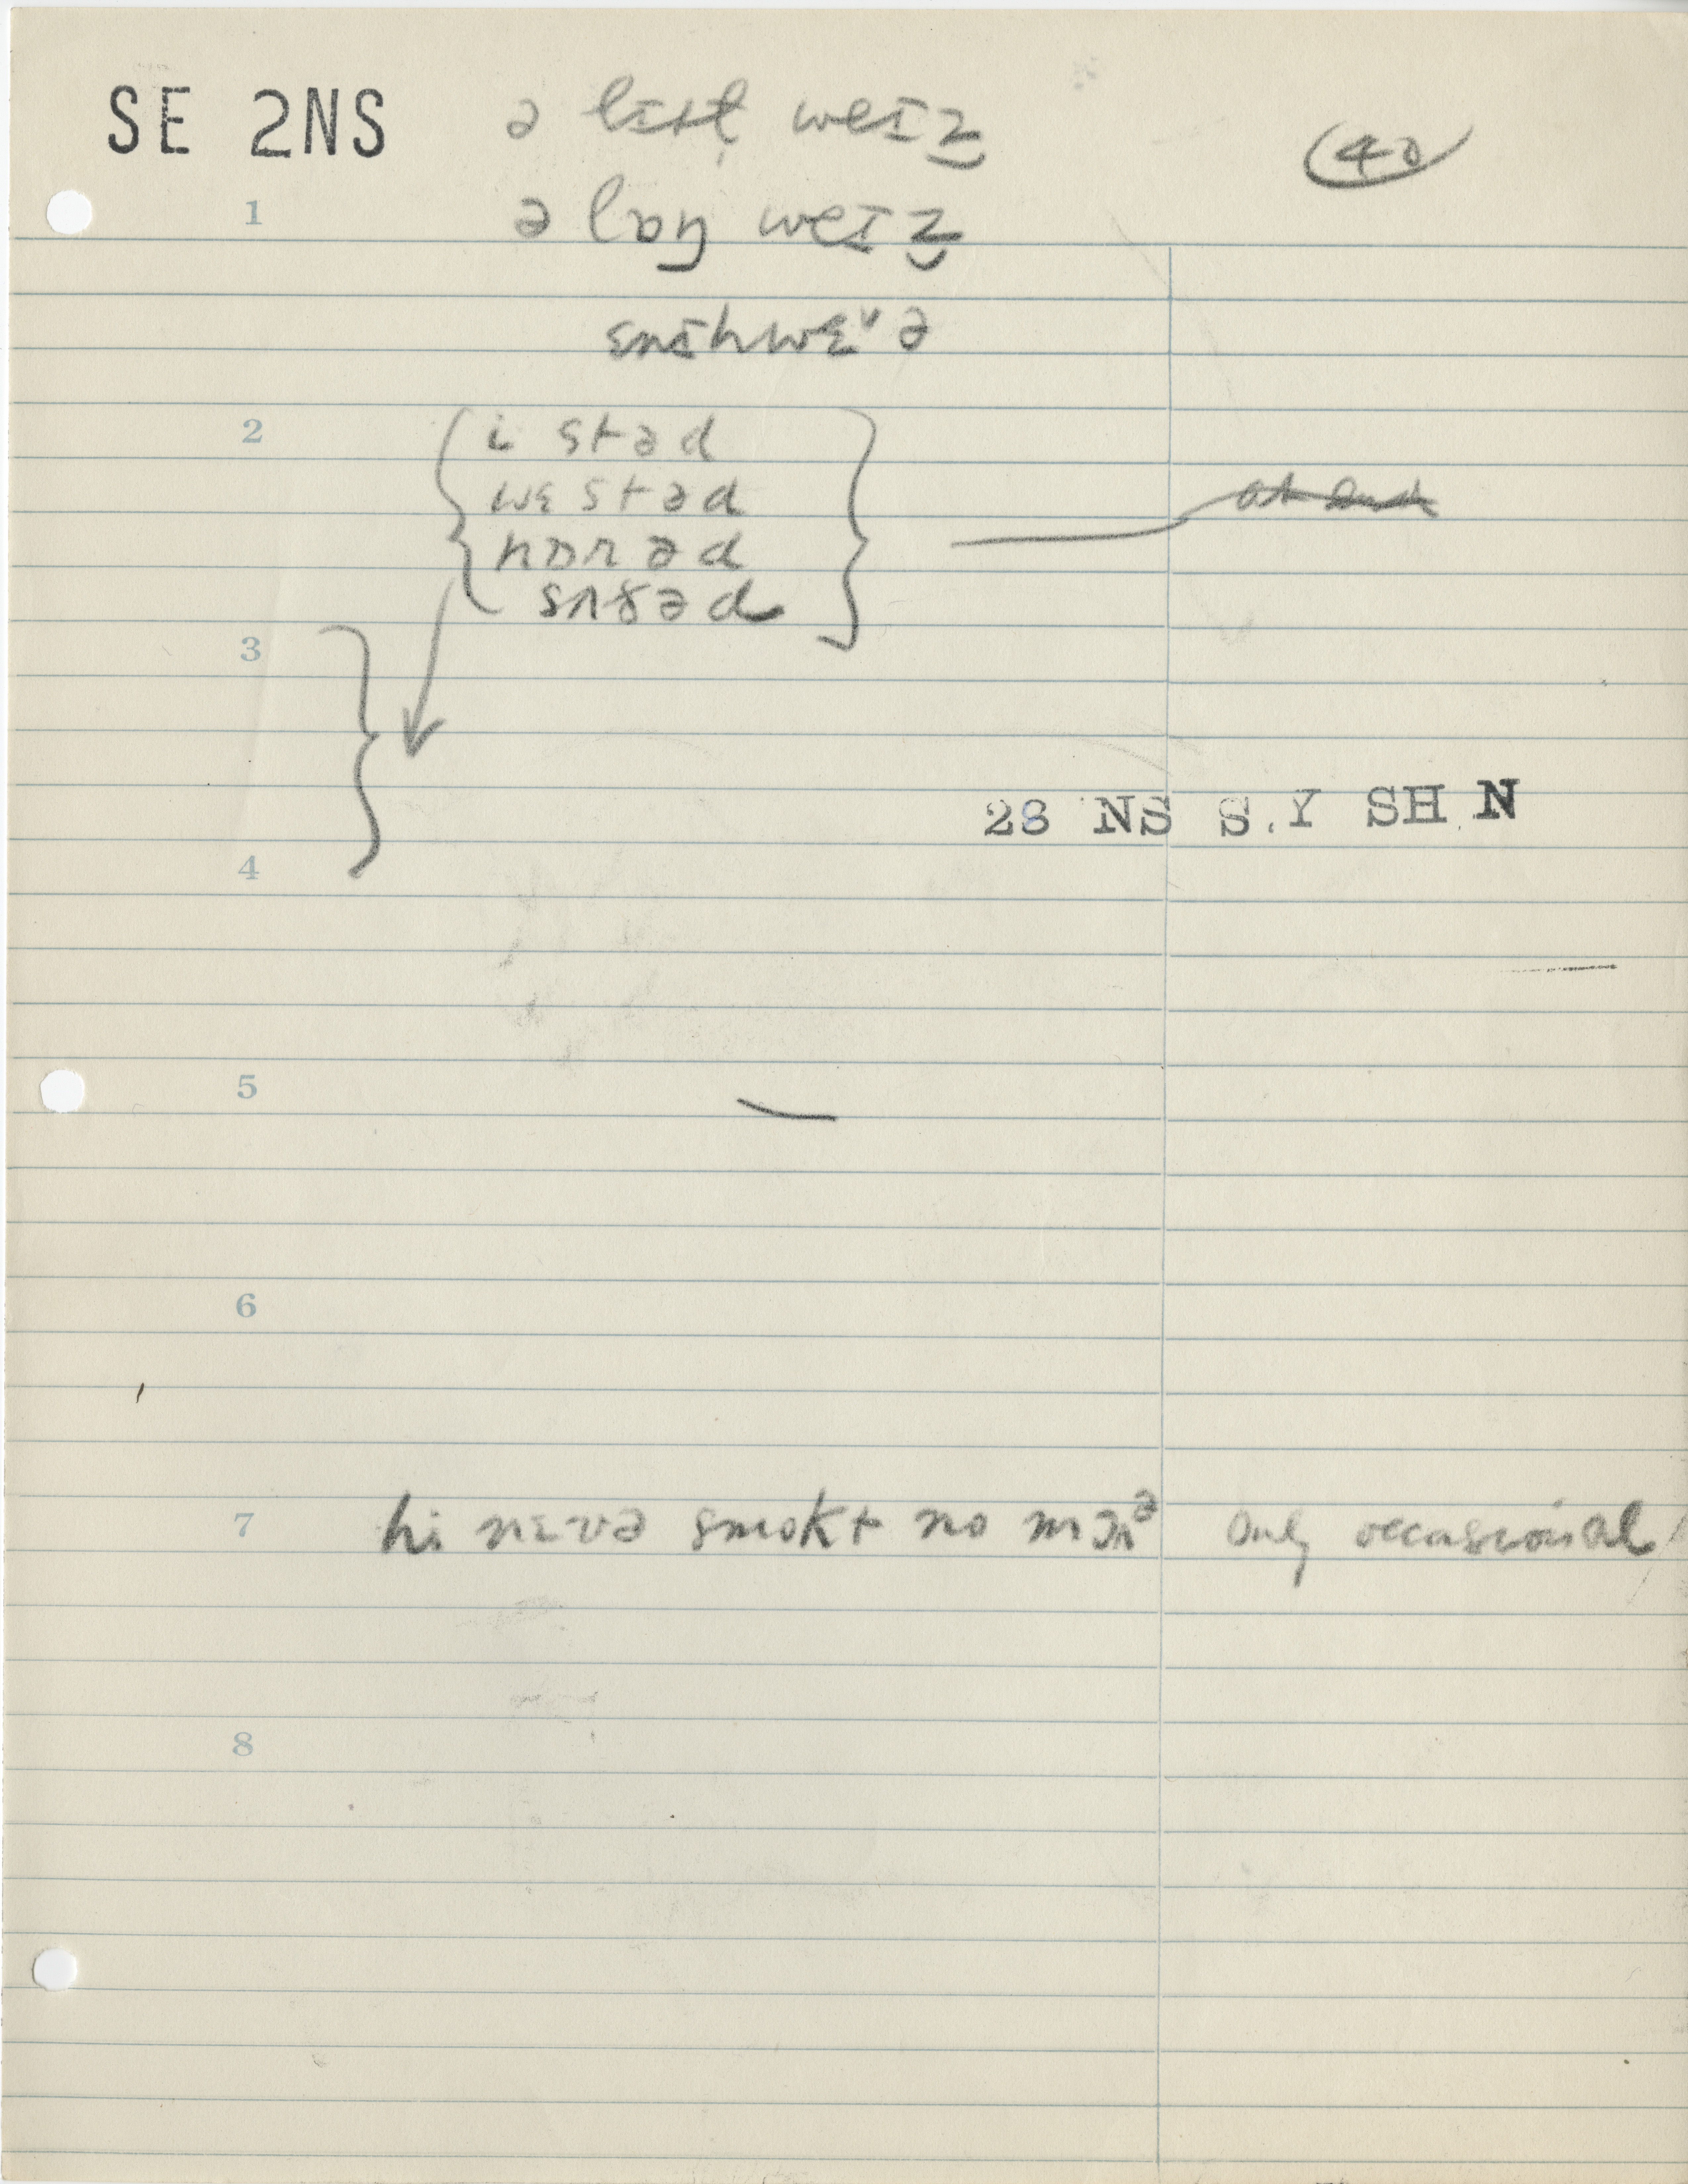 SE 2NS ə lɪtl̩ weɪz 40
1 ə lɒŋ weɪz
ɛnɪhwɛᵊ ə
2 i stəd
wɛstəd
nɒrəd
sʌðəd
3
28 NS S.Y SH N
4
5
6
7 hi nɛvə smokt no mɔrᵊ only occasional
8